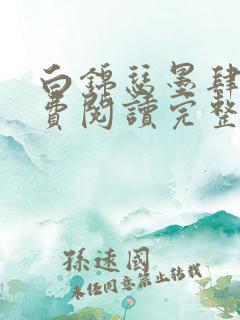 白錦瑟墨肆
費閱讀完整
孫遠國
未經同意禁止轉載